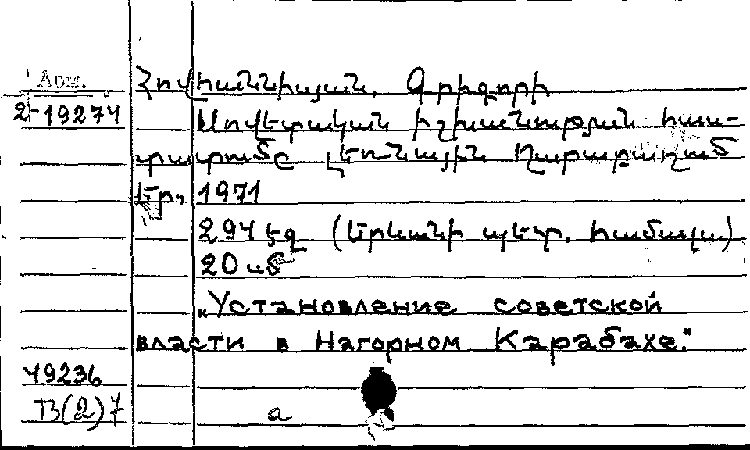 Арм.
Հովհաննիսյան, Գրիգորի
2-19274
Սովետական իշխանության հաս-
տատումը Լեռնային Ղարաբաղում
Եր., 1971
294 էջ (Երևանի պետ. համալս.)
20 սմ
„Установление советской
власти в Нагорном Карабахе."
49236
В(2)7
а